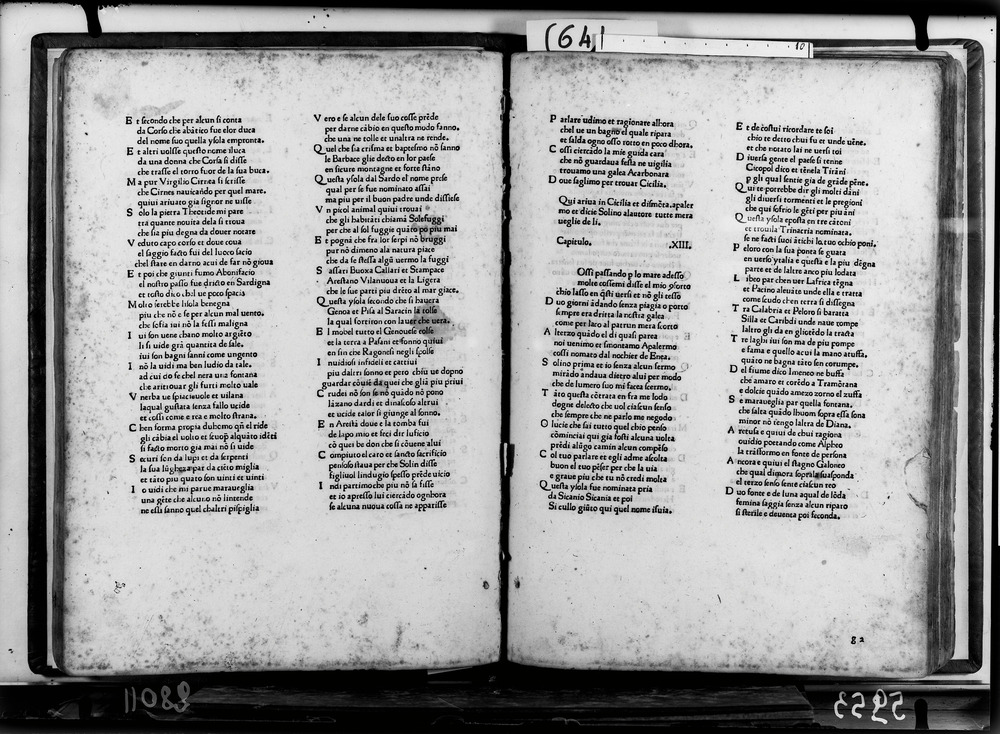 (64)
10
E t secondo che per alcun si conta
da Corso che abatico fue elor duca
del nome suo quella ysola empronta.
E t altri uolsse questo nome iluca
da una donna che Corsa si disse
che trasse el torro fuor de la sua buca.
M a pur Virgilio Cirnea si scrisse
che Cirnes nauicãdo per quel mare.
quiui ariuato gia signor ne uisse
S olo la pietra Theotide mi pare
tra quante nouita dela si troua
che sia piu degna da douer notare
V eduto capo corso et doue coua
el saggio facto fui del luoco sacio
chel stare en darno acui de far nõ gioua
E t poi che giunti fumo Abonifacio
el nostro passo fue dricto en Sardigna
et tosto dico bal ue poco spacia
M olo serebbe lisola benegna
piu che nõ e se per alcun mal uento.
che sofia iui nõ la fessi maligna
I ui son uene chano molto argẽto
li si uide grã quantita de sale.
iui son bagni sanni come ungento
I nõ la uidi ma ben ludio da tale.
ad cui do se chel nera una fontana
che aritrouar gli furti molto uale
V nerba ue spiaceuole et uilana
laqual gustata senza fallo ucide
et cossi come e rea e molto strana.
C ben forma propia duhomo qñ el ride
gli cãbia el uolto et scuop alquãto idẽti
si facto morto gia mai nõ si uide
S ecuri son da lupi et da serpenti
la sua lũghezza par da cẽto miglia
et tãto piu quato son uinti et uinti
I o uidi che mi parue marauegliа
una gẽte che alcuno nõ lintende
ne essi sanno quel chaltri pispiglia
V ero e se alcun dele suo cosse prẽde
per darne cãbio en questo modo fanno.
che una ne tolle et unaltra ne rende.
Q uel che sia crisma et baptesmo nõ sanno
le Barbace glie decto en lor paese
en sicure montagne et forte stãno
Q uesta ysola dal Sardo el nome prese
qual per se fue nominato assai
ma piu per il buon padre unde disciese
V n picol animal quiui trouai
che gli habitãti chiamã Solefuggi
per che al sol fuggie quãto po piu mai
E t pognã che fra lor serpi nõ bruggi
pur nõ dimeno ala natura piace
che da se stessa algũ uermo la fuggi
S assari Buoxa Callari et Stampace
Arestano Vilanuoua et la Ligera
che le sue parti piu drẽto al mar giace.
Q uesta ysola secondo che si hauera
Genoa et Pisa al Saracin la tolse
la qual sortiron con lauer che uera.
E l mobel tutto el Genouese tolse
et la terra a Pisani et sonno quiui
en sin che Ragonesi negli spolse
I nuidiosi infideli et cattiui
piu daltri sonno et pero chiu ue dopno
guardar cõuie da quei che gliã piu priui
C rudei nõ son se nõ quãdo nõ pono
lãzano dardi et dinascoso altrui
et ucide talor si giunge al sonno.
E n Arestã doue e la tomba fui
de lapo mio et feci dir lufficio
cõ ques be don che si cõuene alui
C ompiuto el caro et sancto sacrificio
pensoso staua per che Solin disse
figliuol lindugio spesso prẽde uicio
I ndi partimo che piu nõ sa fisse
et io apresso lui ciercãdo ognhora
se alcuna nuoua cossa ne apparisse
P arlare udimo et ragionare alhora
chel ue un bagno el quale ripara
et salda ogno osso rotto en poco dhora.
C ossi ciercãdo la mie guida cara
che nõ guardaua festa ne uigilia
trouamo una galea Acarbonara
D oue saglimo per trouar Cicilia.
Qui ariua in Cicilia et dismõta.apaler
mo et dice Solino alautore tutte mera
ueglie de li.
Capitulo. .XIII.
Ossi passando p lo mare adesso
molte cossemi disse el mio psorto
chio lasso en q̃sti uersi et nõ gli tesso
D uo giorni ãdando senza piagia o porto
sempre era dritta la nostra galea
come per laco al patrun mera scorto
A lterzo quãdo el di quasi parea
noi uenimo et smontamo Apalermo
cossi nomato dal nochier de Enea.
S olino prima et io senza alcun fermo
mirãdo andaua dietro alui per modo
che de lumero suo mi facea scermo.
T ãto questa cõtrata en fra me lodo
degne delecto che uol ciascun senso
che sempre che ne parlo me negodo
O lucie che sai tutto quel chio penso
cõminciai qui gia fosti alcuna uolta
prẽdi alũgo camin alcun compẽso
C ol tuo parlare et egli adme ascolta
buon el tuo pẽser per che la uia
e graue piu che tu nõ credi molta
Q uesta ysola fue nominata pria
da Sicanio Sicania et poi
Si cullo giũto qui quel nome isuia.
E t de costui ricordare te sei
chio te decto chui fu et unde uẽne.
et che notato lai ne uersi toi
D iuersa gente el paese si tenne
Cicopol dico et tẽnela Tirãni
p gli qual sentie gia de grãde pẽne.
Q ui te potrebbe dir gli molti dãni
gli diuersi tormenti et le pregioni
che qui sofrio le gẽti per piu ãni
Q uesta ysola eposta en tre cãtoni
et trouila Trinacria nominata.
se ne facti suoi ãtichi lo tuo ochio poni.
P eloro con la sua ponta se guata
en uerso ytalia e questa e la piu dẽgna
parte et de laltre anco piu lodata
L ibeo par chen uer Lafrica tẽgna
et Pacino aleuãte unde ella e tratta
come scudo chen terra si dissegna
T ra Calabria et Peloro si baratta
Silla et Caribdi unde naue rompe
laltro gli da en gliotẽdo la tracta
T re laghi iui son ma de piu pompe
e fama e quello acui la mano atuffa,
quãto ne bagna tãto sen corumpe.
D el fiume dico Imeneo ne buffa
che amaro et corẽdo a Tramõtana
e dolcie quãdo amezo zorno el zuffa
S e marauegliа par quella fontana.
che salta quãdo lhuom sopra essa sona
minor nõ tengo laltra de Diana.
A retusa e quiui de chui ragiona
ouidio poetando come Alpheo
la trãsformo en fonte de persona
A ncora e quiui el stagno Galoneo
che qual dimora sopra la sua sponda
el terzo senso sente ciascun reo
D uo fonte e de luna aqual de lõda
femina saggia senza alcun riparo
si sterile e deuenta poi feconda.
g 2
28011
5953